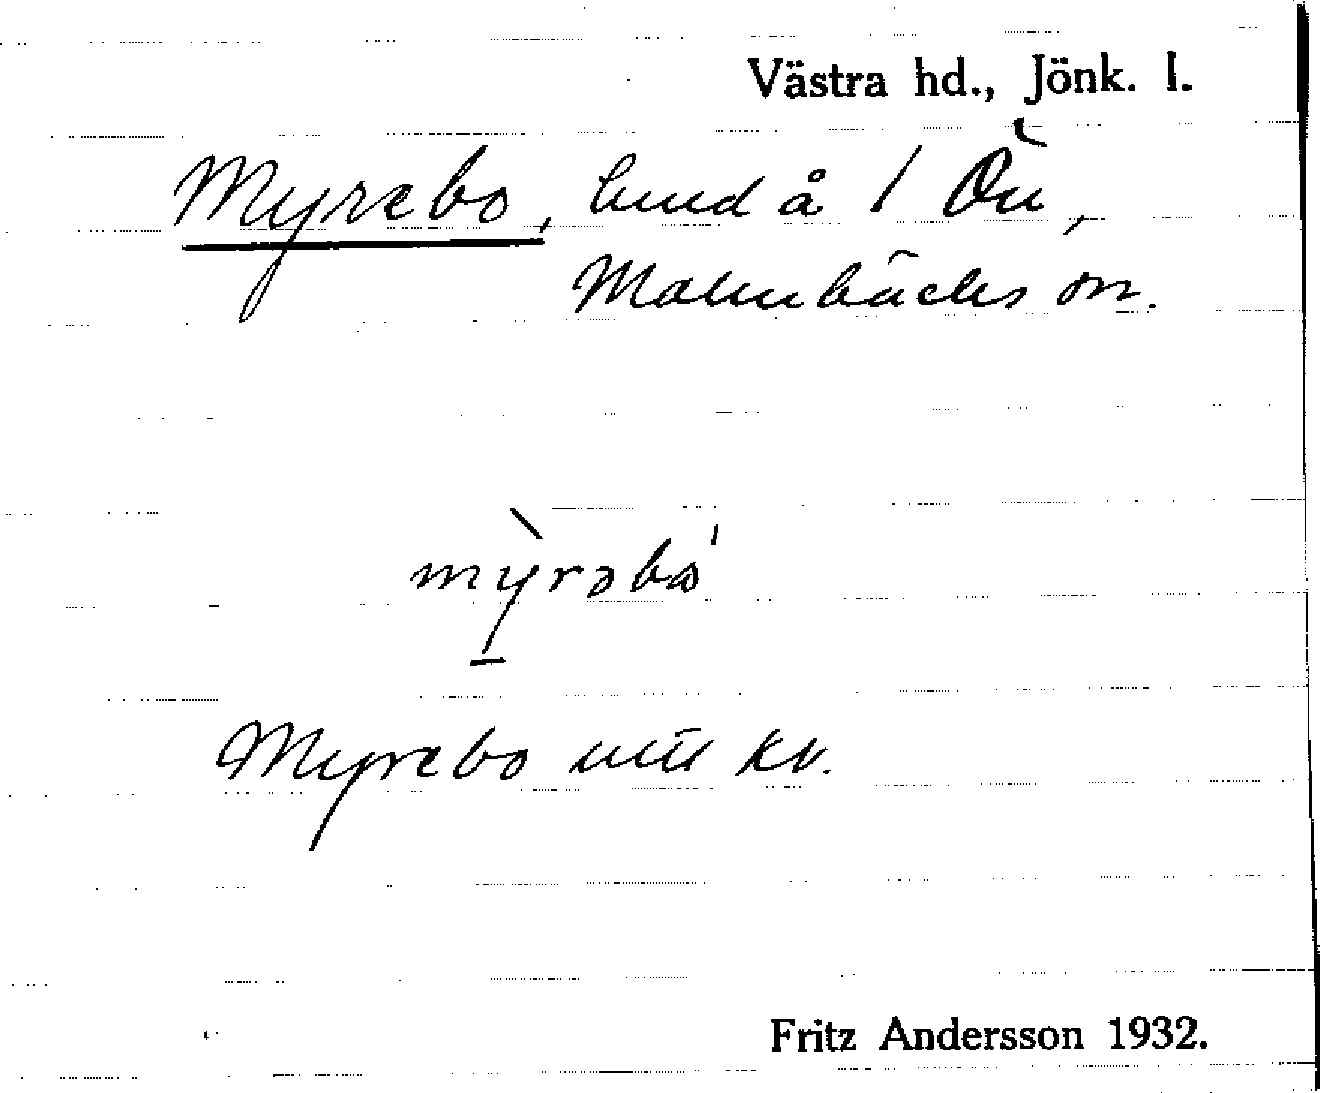 Västra hd., Jönk. l.
Myrebo, lund å 1 Ön,
Malmbäcks sn.
mỳrəbo'
Myrebo utt kv.
Fritz Andersson 1932.